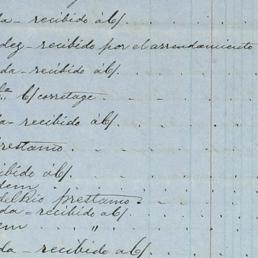 da - recibido á C/.
dez - recibido por el arrendamiento
da - recibido á C/.
C/ corretage.
da - recibido á C/.
prestamo.
recibido á C/.
idem
del Rio prestamo.
da - recibido á C/.
idem "
da - recibido á C/.